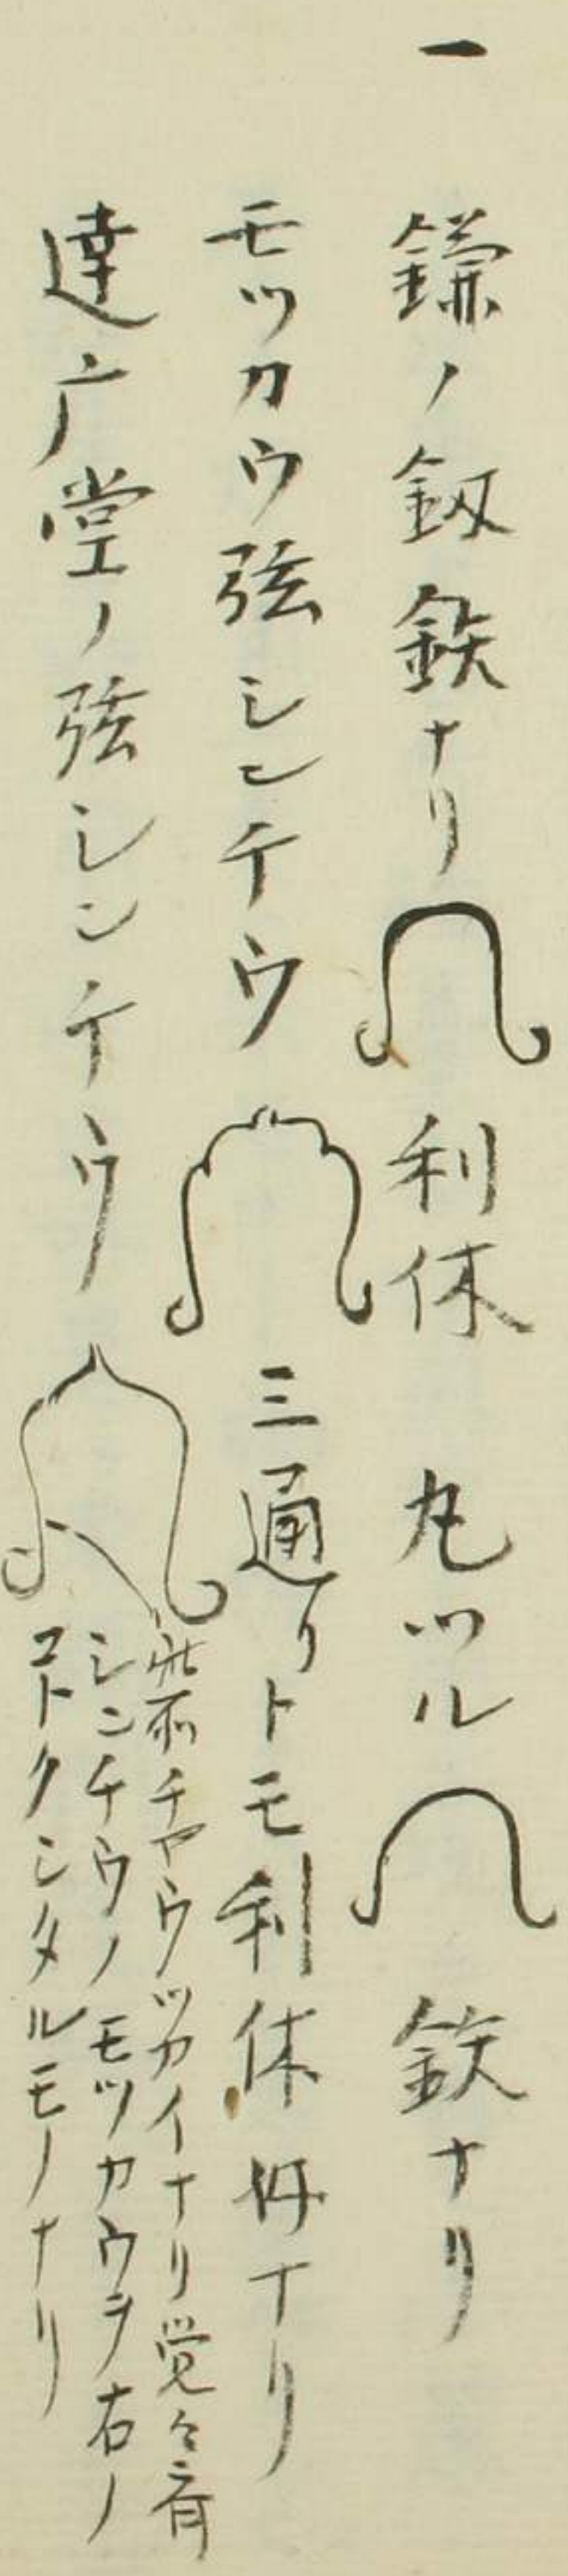 一 鎌ノ釼鉄ナリ 利休 丸ツル 鉄ナリ
モツカウ弦シンチウ 三通リトモ利休好ナリ
達广堂ノ弦シンチウ
此所チヤウツカイナリ覚々斉
シンチウノモツカウヲ右ノ
コトクシタルモノナリ